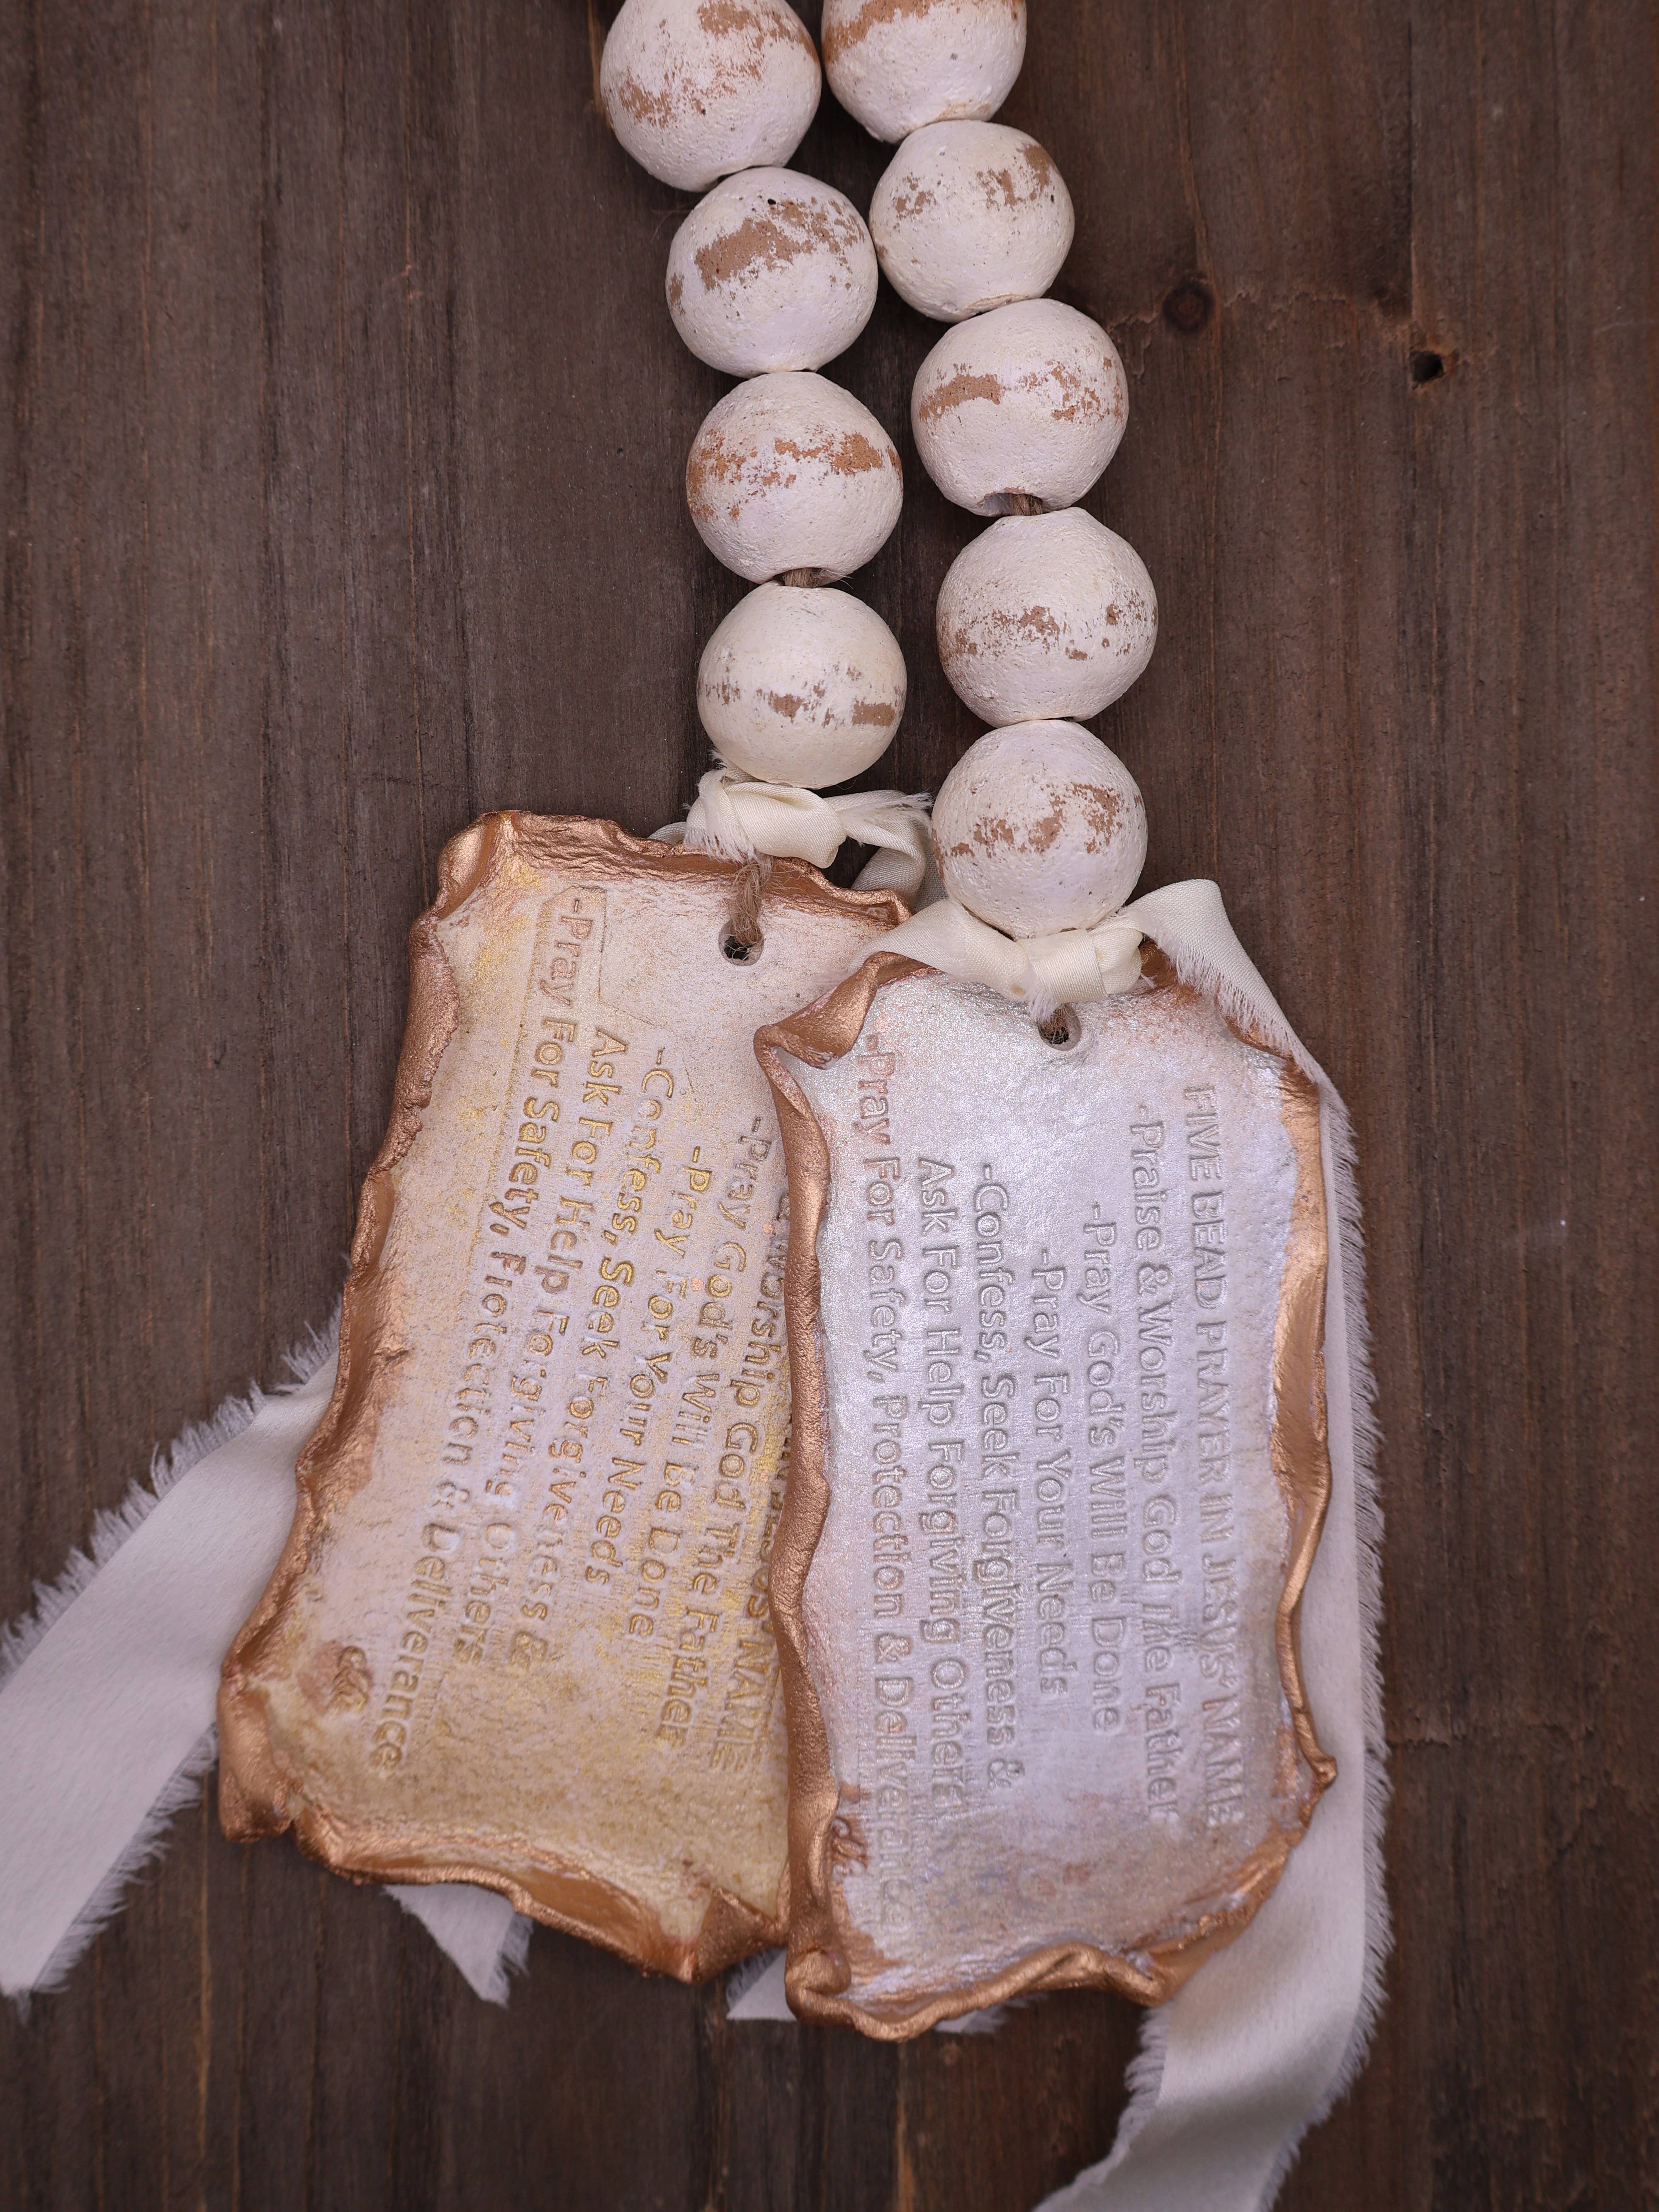 -Worship God The Father
-Pray God's Will Be Done
-Pray For Your Needs
-Confess, Seek Forgiveness &
Ask For Help Forgiving Others
-Pray For Safety, Protection & Deliverance
FIVE BEAD PRAYER IN JESUS' NAME
-Praise & Worship God The Father
-Pray God's Will Be Done
-Pray For Your Needs
-Confess, Seek Forgiveness &
Ask For Help Forgiving Others
-Pray For Safety, Protection & Deliverance